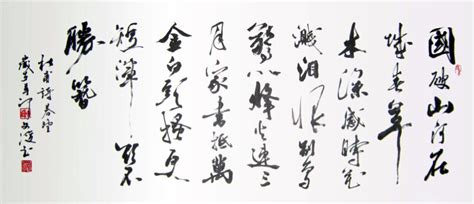 國破山河在
城春草
木深感時花
濺淚恨別鳥
驚心烽火連三
月家書抵萬
金白頭搔更
短渾欲不
勝簪
杜甫詩春望
歲
書